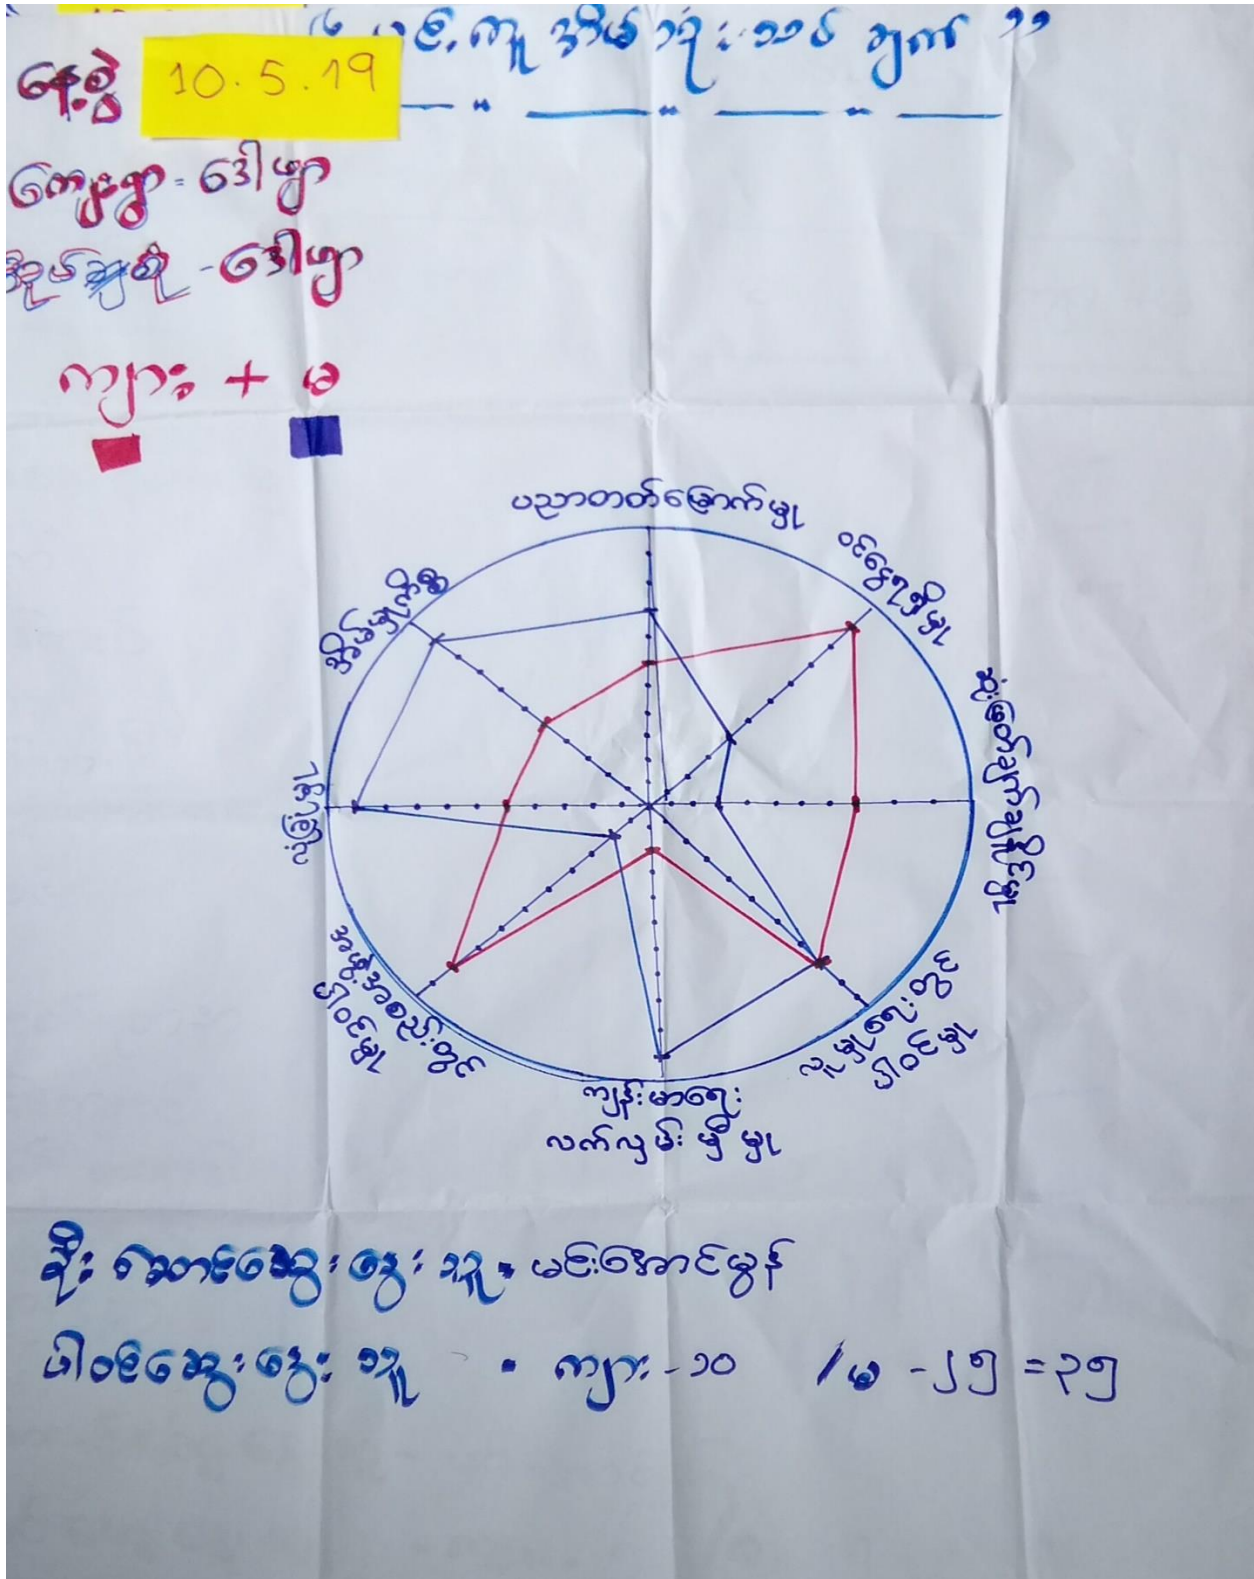 ပင့်ကူအိမ်သုံးသပ်ချက် "
နေ့စွဲ 10.5.19
ကျေးရွာ - ဒေါဖျာ
ဒေါဖျာ
ကျား + မ
ပညာတတ်မြောက်မှု
ဝင်ငွေရရှိမှု
ဆုံးဖြတ်ချက်ချနိုင်မှု
လူမှုရေးတွင်
ပါဝင်မှု
ကျန်းမာရေး
လက်လှမ်းမှီမှု
အဖွဲ့အစည်းတွင်
ပါဝင်မှု
လုံခြုံမှု
အိမ်မှုကိစ္စ
ဦးဆောင်ဆွေးနွေးသူ - မင်းအောင်မွန်
ပါဝင်ဆွေးနွေးသူ - ကျား - ၁၀ / မ - ၂၅ = ၃၅